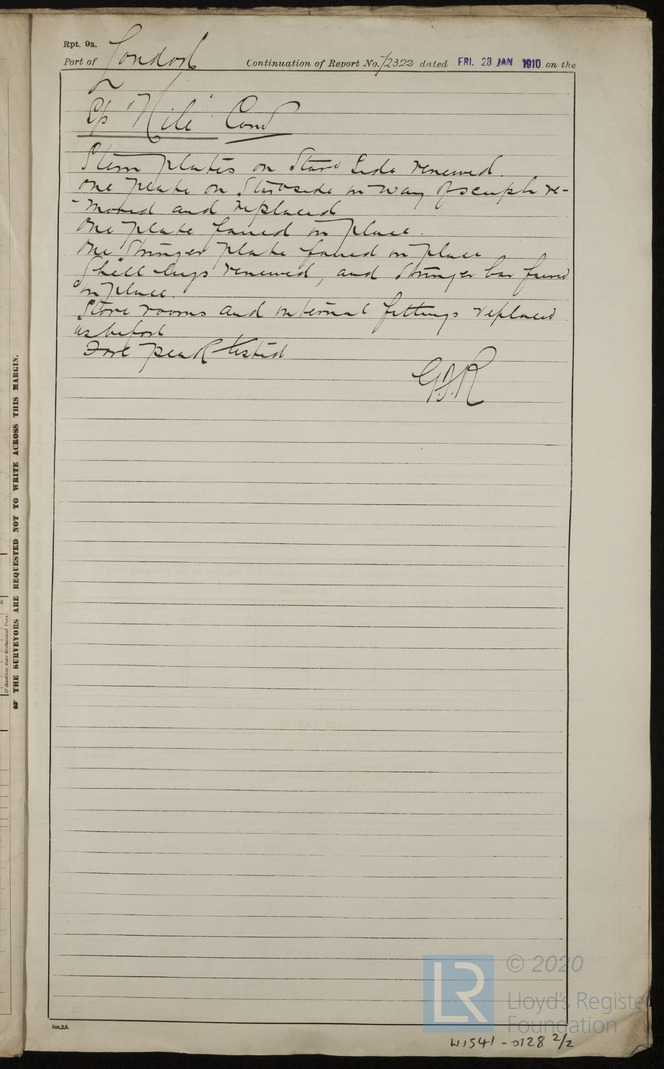 Rpt. 9a.
Port of London Continuation of Report No. 72322 dated FRI. 28 JAN 1910 on the
S/s "Nile" Cond
Stem plates on Starb Side renewed.
One plate on Starbside in way of scuph re-
-moved and replaced
One plate faired in place.
One Stringer plate faired in place
Shell lugs renewed, and Stringer bar faired
in place.
Store rooms and internal fittings replaced
as before
Fore peak tested
G.J.R
THE SURVEYORS ARE REQUESTED NOT TO WRITE ACROSS THIS MARGIN.
© 2020
LR Lloyd's Register
Foundation
W1541-0128 2/2